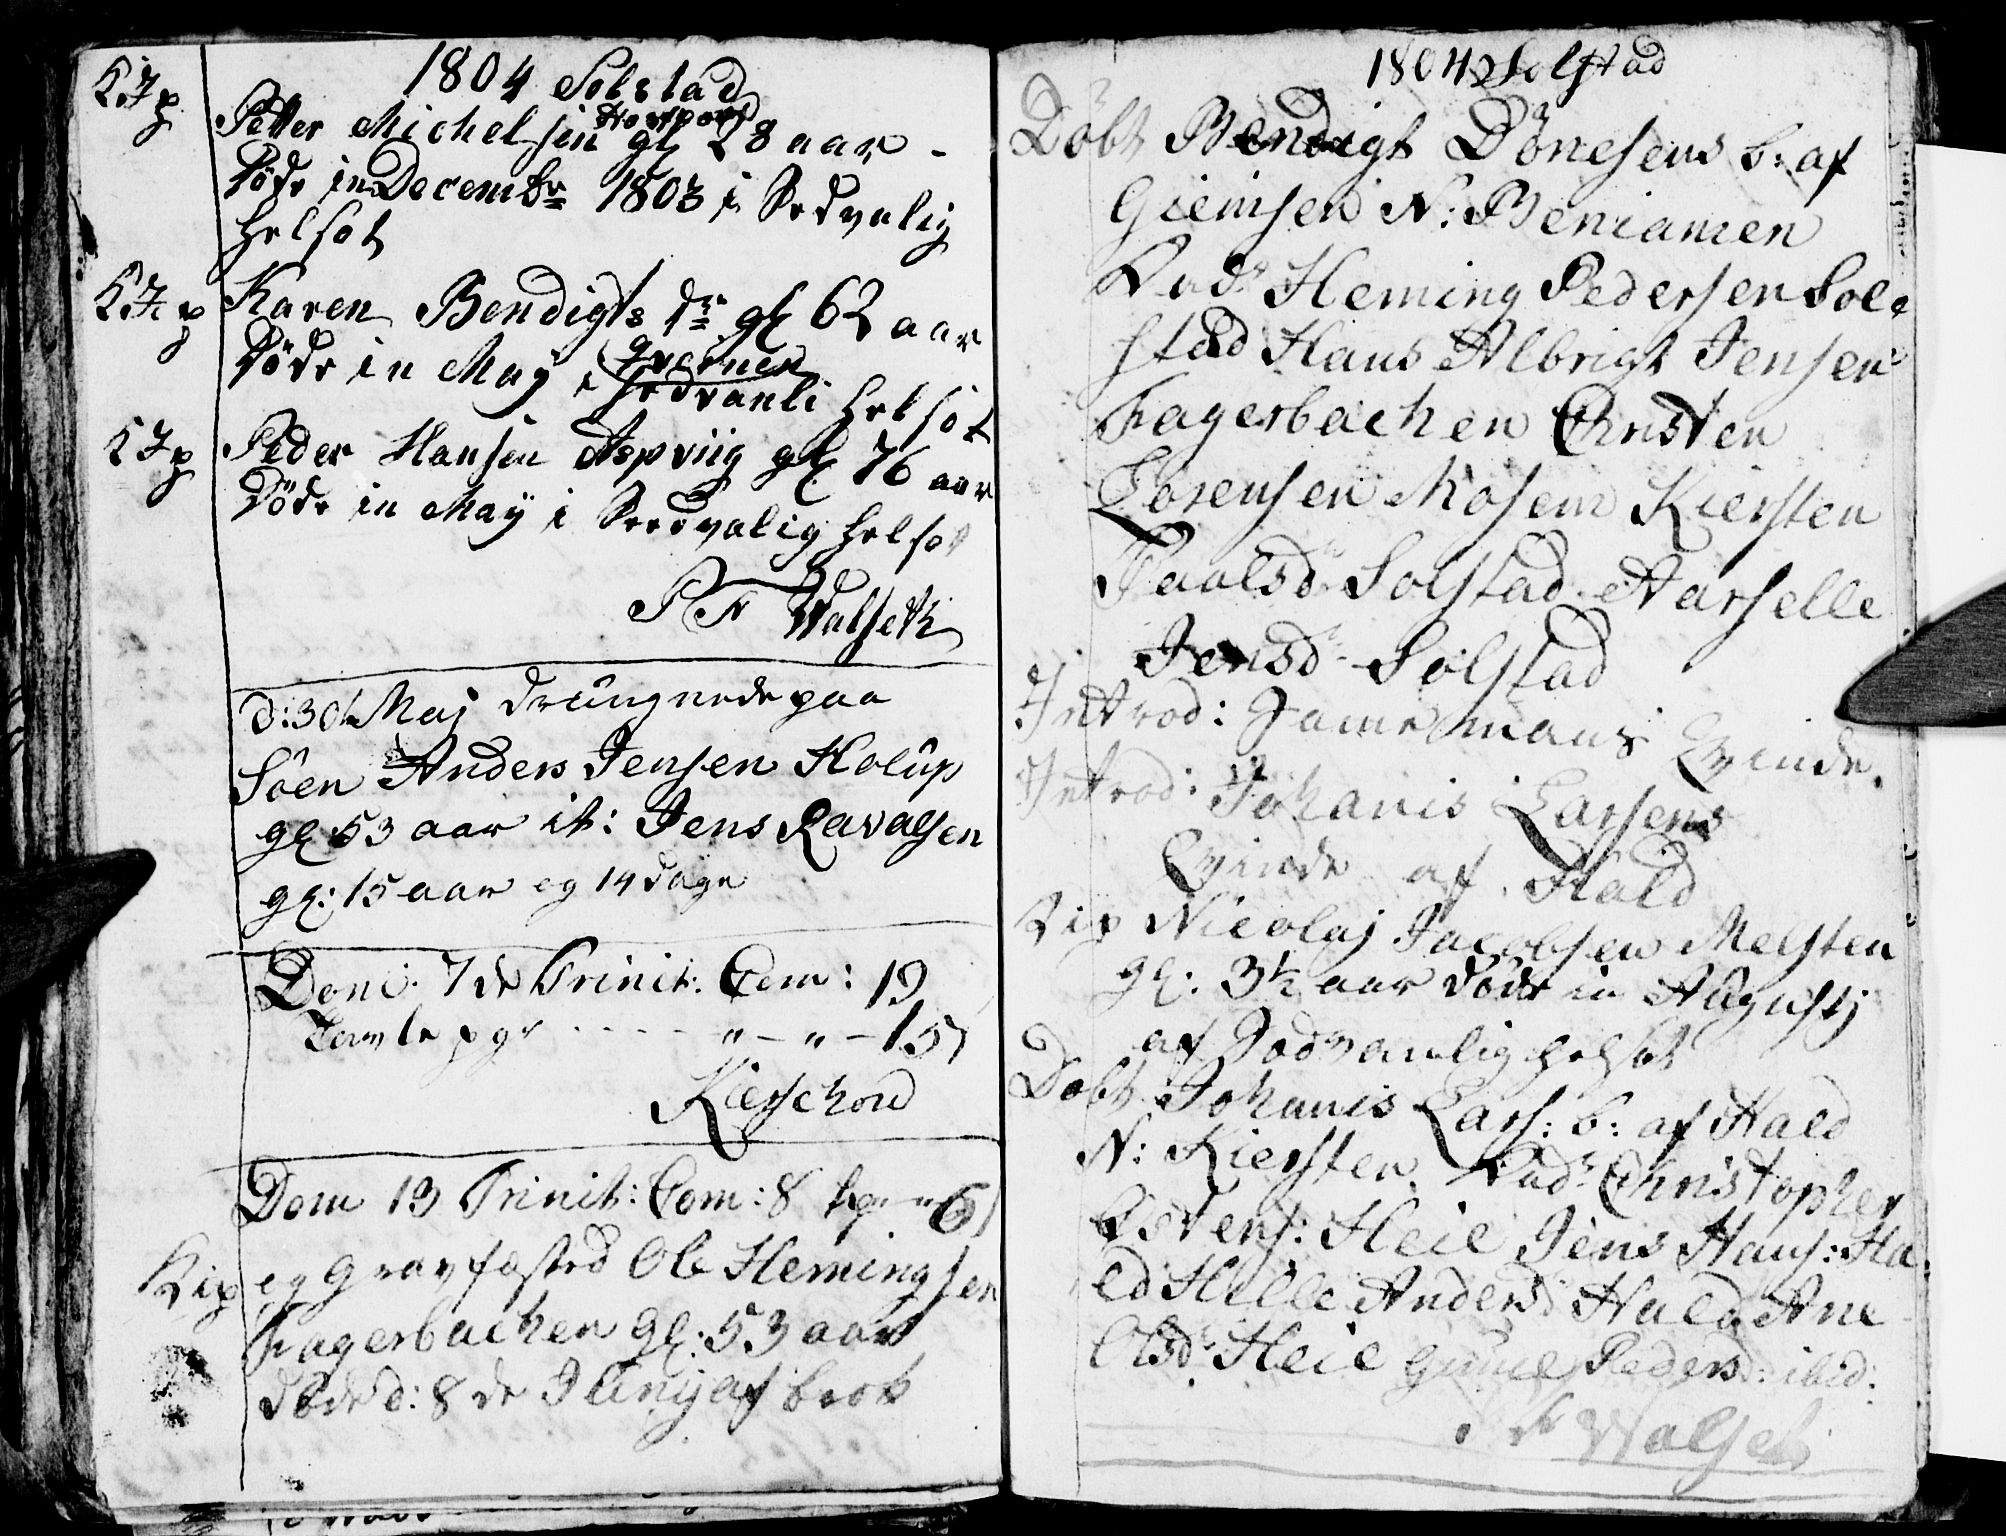 1804 Solstad
K: J p Petter Michelsen Torpord gl 28 aar -
Döde in Decembr 1803 i Sedvalig
helsot
K: J: p Karen Bendigts dr gl 62 aar
Döde in May i sedvanli helsot
K J p Peder Hansen Aspviig gl 76 aar
Döde in May i Seedvalig helsot
P F Walseth
d: 30t Maj drungnede paa
Söen Anders Jensen Holup
gl 53 aar it: Jens Ravalsen
gl: 15 aar og 14 dage
Dom: 7de Trinit: Com: 19
Tavle pge - - - - " - " - 15
Kierschou
Dom 13 Trinit: Com: 8 tp: " 6
K i p og Gravfæsted Ole Hemingsen
Fagerbachen gl: 53 aar
döde d: 8de Junij af brok
1804 Solstad
Döbt Bendigt Dönesens b: af
Giemsen N: Beniamen
Fad: Heming Pedersen Sol-
stad Hans Albrigt Jensen
Fagerbachen Christen
Sorensen Mosem Kiersten
Paalsd Solstad Aarselle
Jensd Solstad
Introd: Samemans Qvinde.
Introd: Johanis Larsens
Qvinde af Hald
K i p Nicolaj Jacobsen Melsten
gl: 3½ aar döde in Augustj
af Sædvanlig helsot
Döbt Johanis Lars: b: af Hald
N: Kiersten. Fad: Christopher
Ostens: Heie Jens Hans: Ha-
ld Helle Andersd Hald Ane
Olsd Heie Gunel Pedersd: ibid:
F Walseth